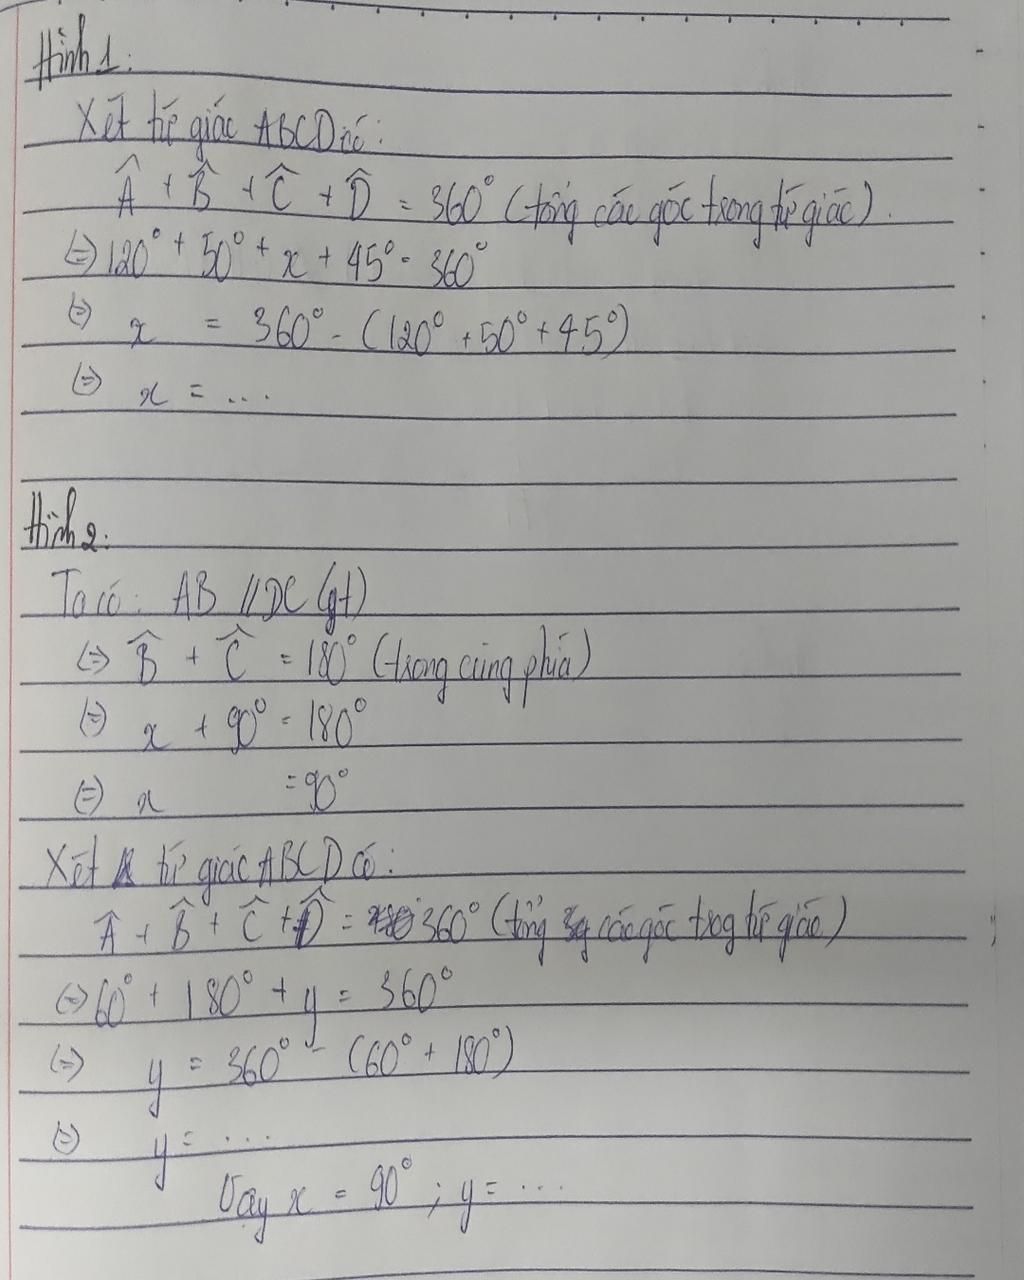 Hình 1:
Xét tứ giác ABCD có:
Â + B̂ + Ĉ + D̂ = 360° (tổng các góc trong tứ giác).
(=) 120° + 50° + x + 45° = 360°
(=) x = 360° - (120° + 50° + 45°)
(=) x = ...
Hình 2:
Ta có: AB // DC (gt)
(=) B̂ + Ĉ = 180° (trong cùng phía)
(=) x + 90° = 180°
(=) x = 90°
Xét tứ giác ABCD có:
Â + B̂ + Ĉ + D̂ = 360° (tổng các góc trog tứ giác)
(=) 60° + 180° + y = 360°
(=) y = 360° - (60° + 180°)
(=) y = ...
Vậy x = 90° ; y = ...